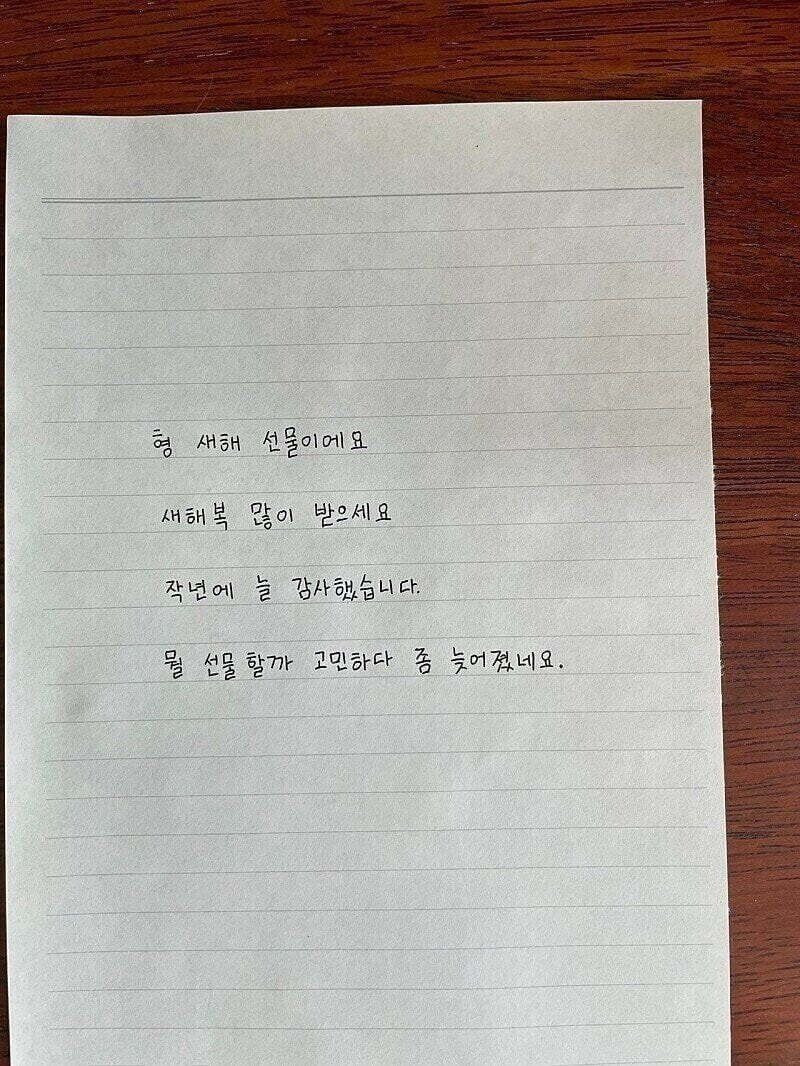 형 새해 선물이에요
새해복 많이 받으세요
작년에 늘 감사했습니다.
뭘 선물할까 고민하다 좀 늦어졌네요.